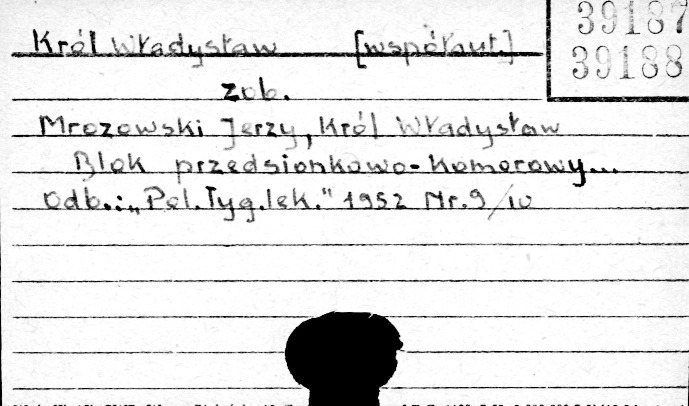 39187
39188
Król Władysław [współaut.]
zob.
Mrozowski Jerzy, Król Władysław
Blok przedsionkowo-komorowy...
Odb.: „Pol. Tyg. lek." 1952 Nr. 9/10